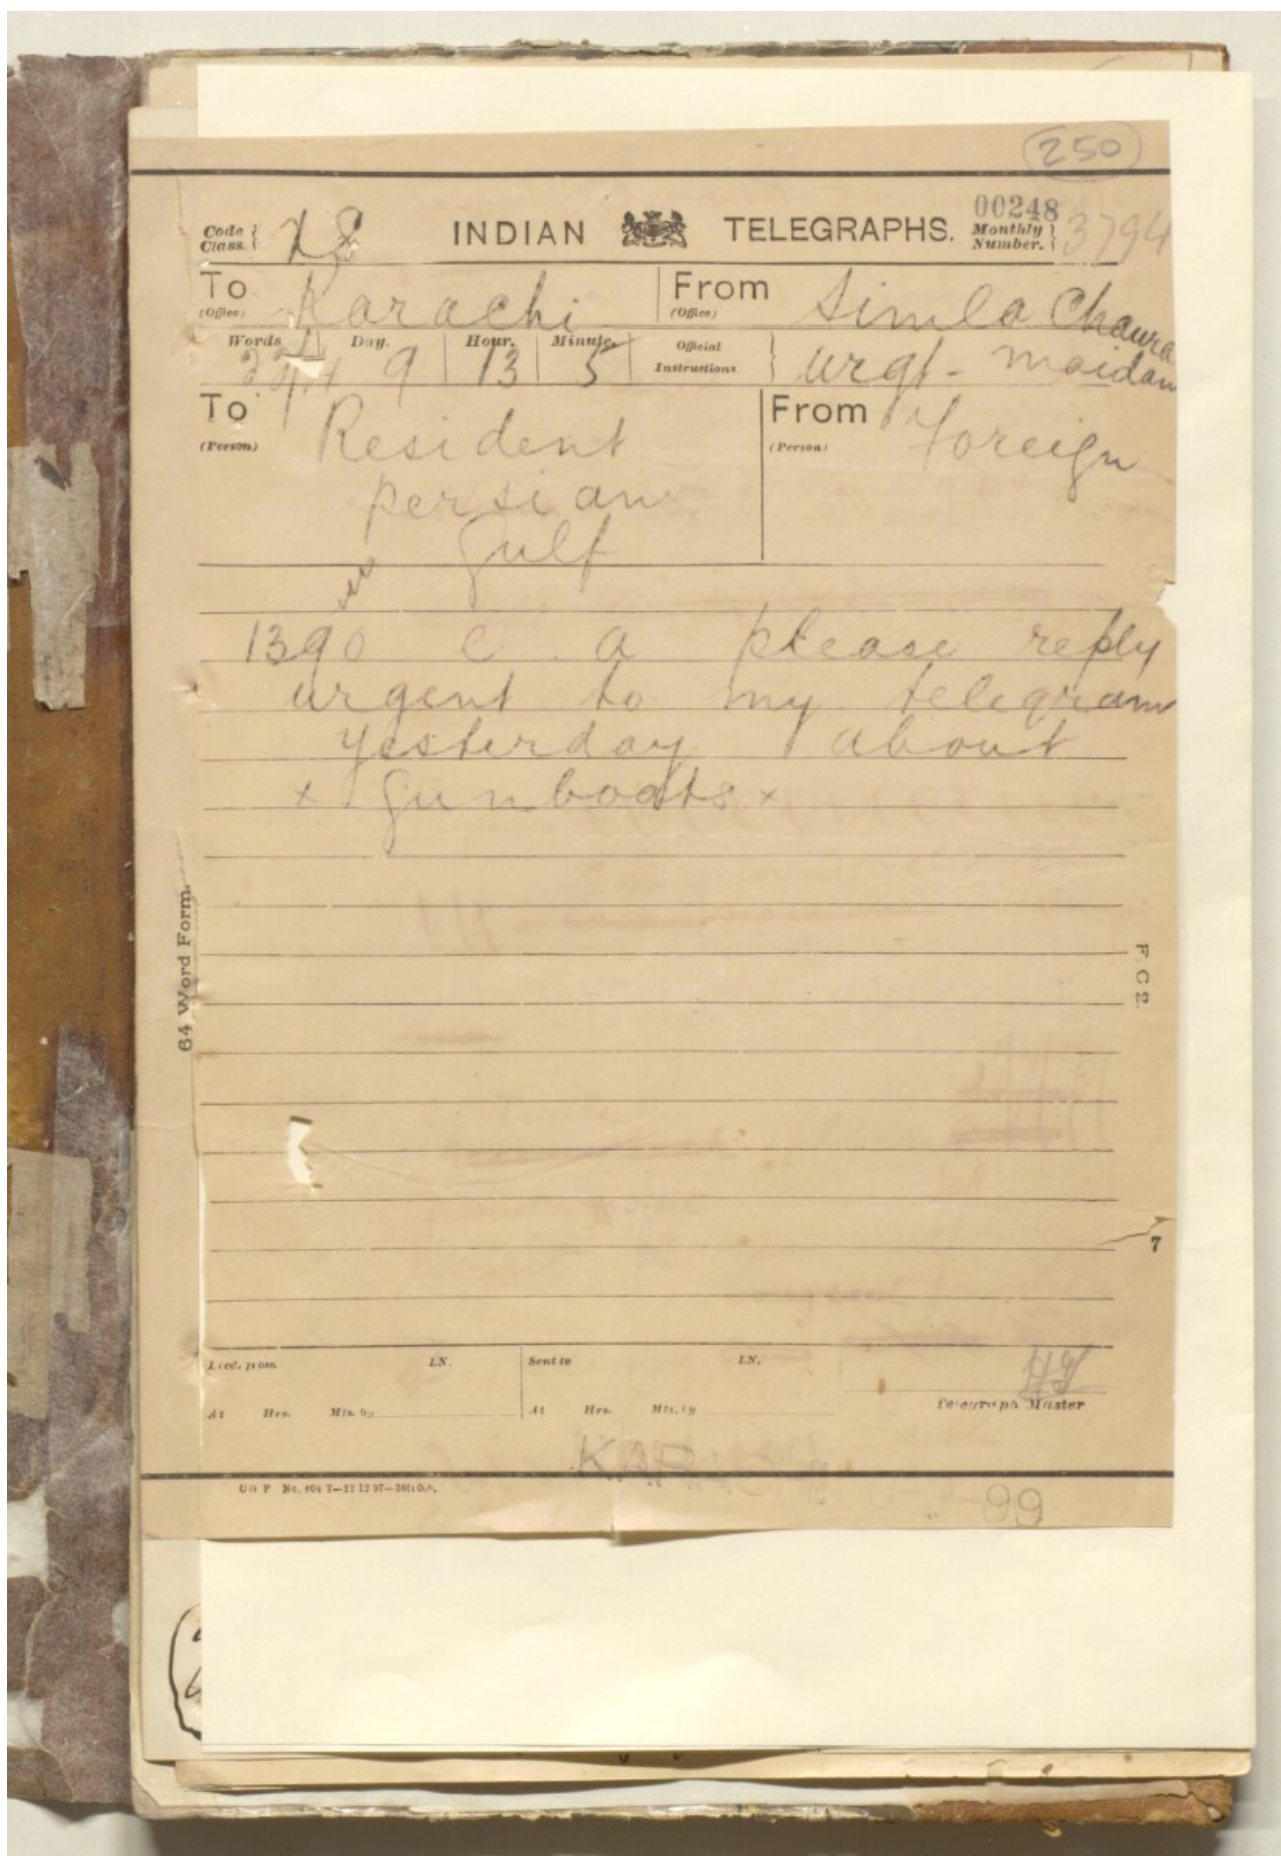 250
Code
Class.
INDIAN TELEGRAPHS.
00248
Monthly
Number. 3794
To
(Office)
Karachi
From
(Office)
Simla Chaura
maidan
Words Day. Hour. Minute.
9 13 5
Official
Instructions
urgt.
To
(Person)
Resident
persian
Gulf
From
(Person)
Foreign
1390 e a please reply
urgent to my telegram
yesterday about
x Gunboats x
64 Word Form.
F. C 2.
7
LN. Sent to LN.
At Hrs. Mts. by At Hrs. Mts. by
Telegraph Master
99